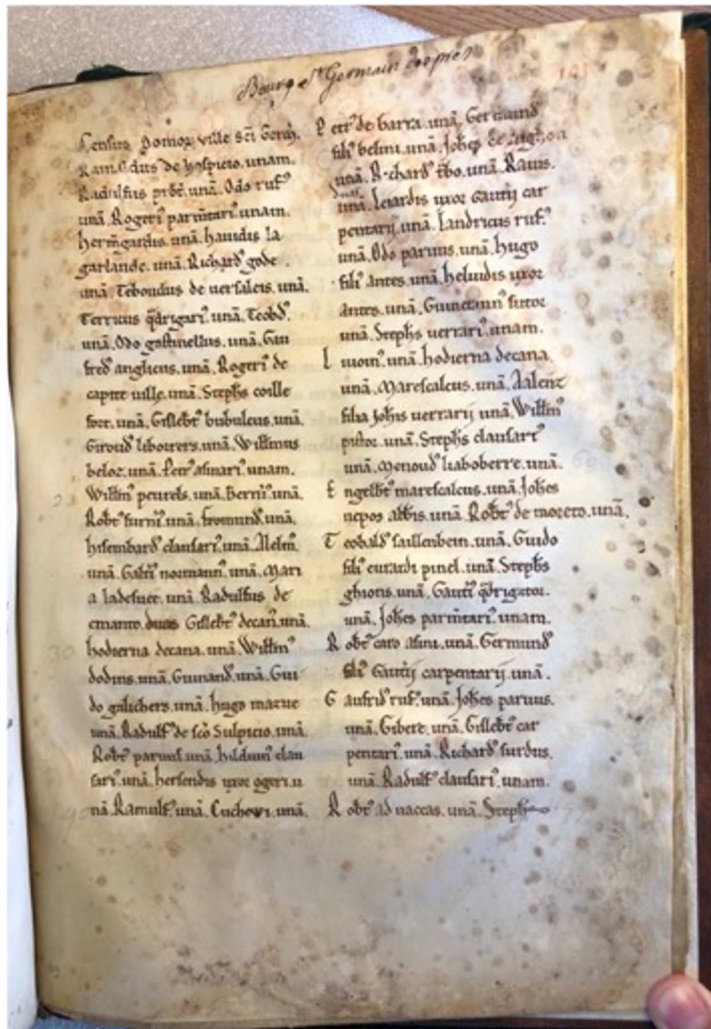 Bourg St Germain des prés
Census Domoꝝ ville sci Germ̃.
Ramildus de hospicio. unam.
Radulfus prbr̃. unã. Odo ruf᾿
unã. Rogeri᾿ parm̃tari᾿. unam.
hermgardis. unã. hauidis la
garlande. unã. Richard᾿ gode.
unã. Teboudus de uersaleis. unã.
Terricus q̃drigari᾿. unã. Teobd᾿.
unã. Odo gastinellus. unã. Gau
fred᾿ anglicus. unã. Rogeri᾿ de
capite uille. unã. Stephs coille
fort. unã. Gislebt᾿ bubulcus. unã.
Giroud᾿ liborrers. unã. Willmus
beloc. unã. Petr᾿ asinari᾿. unam.
Willm᾿ peurels. unã. Berni᾿. unã.
Robt᾿ furni᾿. unã. fromund᾿. unã.
hysembard᾿ clausari᾿. unã. Aelm᾿.
unã. Galt᾿i normann᾿. unã. Mari
a ladesuee. unã. Radulfus de
cmanto. duas Gislebt᾿ decan᾿. unã.
hodierna decana. unã. Willm᾿
dodins. unã. Guinand᾿. unã. Gui
do galichers. unã. hugo marue
unã. Radulf᾿ de sco Sulpicio. unã.
Robt᾿ paruus. unã. hilduin᾿ clau
sari᾿. unã. hersendis uxor ogeri. u
nã. Ramulf᾿. unã. Cuchowi. unã.
Petr᾿ de barra. unã. Germund᾿
fili᾿ belini. unã. Johes de
unã. Richard᾿ tbo. unã. Rauis.
unã. Leiardis uxor Gautij car
pentarij. unã. Landricus ruf᾿.
unã. Odo paruus. unã. hugo
fili᾿ antes. unã. heluidis uxor
antes. unã. Guineman᾿ sutor
unã. Stephs uerrari᾿. unam.
Iuoin᾿. unã. hodierna decana
unã. Marescalcus. unã. Aalenz
filia Johis uerrarij unã. Willm᾿
pistor. unã. Stephs clausari᾿
unã. Menoud᾿ liaboberre. unã.
Engelbt᾿ marescalcus. unã. Johes
nepos abbis. unã. Robt᾿ de moreto. unã.
Teobald᾿ saillenbein. unã. Guido
fili᾿ eurardi pinel. unã. Stephs
ghions. unã. Gauti᾿ q̃drigator.
unã. Johes parm̃tari᾿. unam.
Robt᾿ caro asini. unã. Germund᾿
fili᾿ Gautij carpentarij. unã.
Gaufrid᾿ ruf᾿. unã. Johes paruus.
unã. Gibert. unã. Gislebt᾿ car
pentari᾿. unã. Richard᾿ surdus.
unã. Radulf᾿ clausari᾿. unam.
Robt᾿ ad uaccas. unã. Stephs